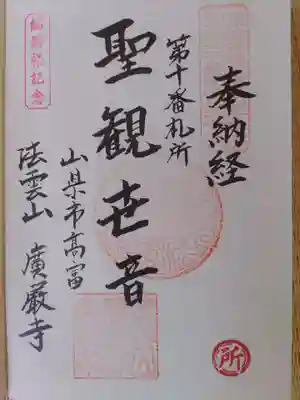 奉納経
第十番札所
聖観世音
山県市高富
法雲山 廣厳寺
御開帳記念
所